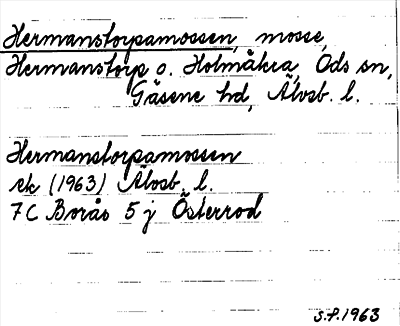 Hermanstorpamossen, mosse,
Hermanstorp o. Holmåkra, Ods sn,
Gäsene hd, Älvsb. l.
Hermanstorpamossen
ek (1963) Älvsb. l.
7C Borås 5 j Österrod
S.P. 1963